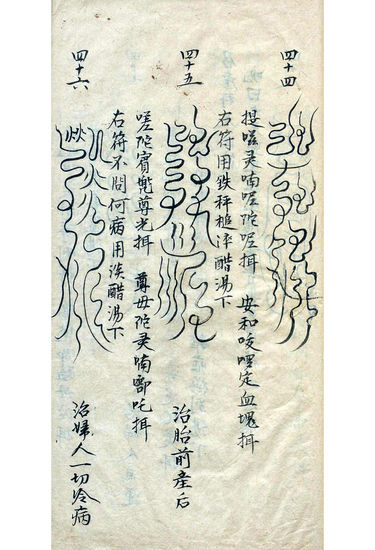 四十四
灵喃嗟陀呢揖　安和唆哩定血塊揖
右符用鉄秤槌淬醋湯下
四十五　治胎前產后
嗟陀賓尊光揖　尊毋陀灵喃吒揖
右符不問何病用淡醋湯下
四十六　治婦人一切冷病